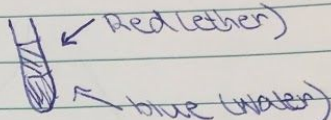 Red (ether)
blue (water)